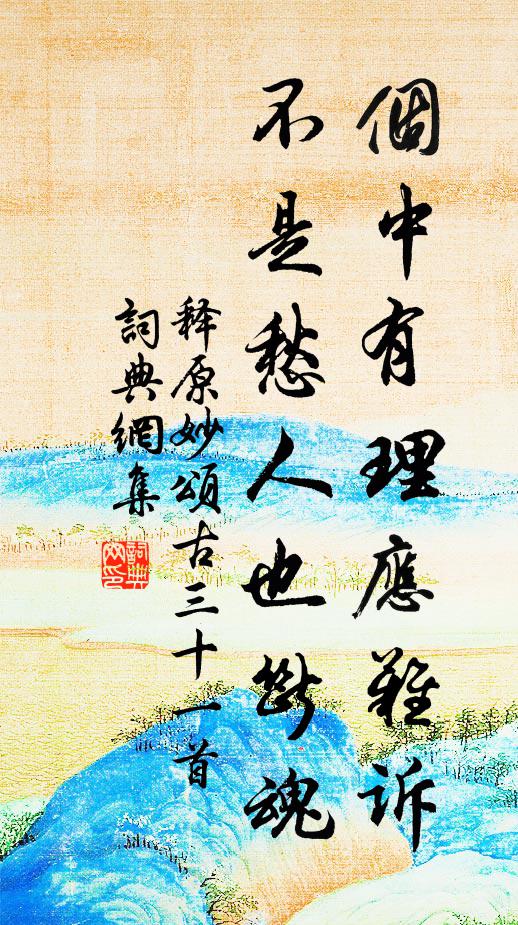 個中有理應難诉
不是愁人也斷魂
释原妙頌古三十一首
詞典網集
詞典
网印